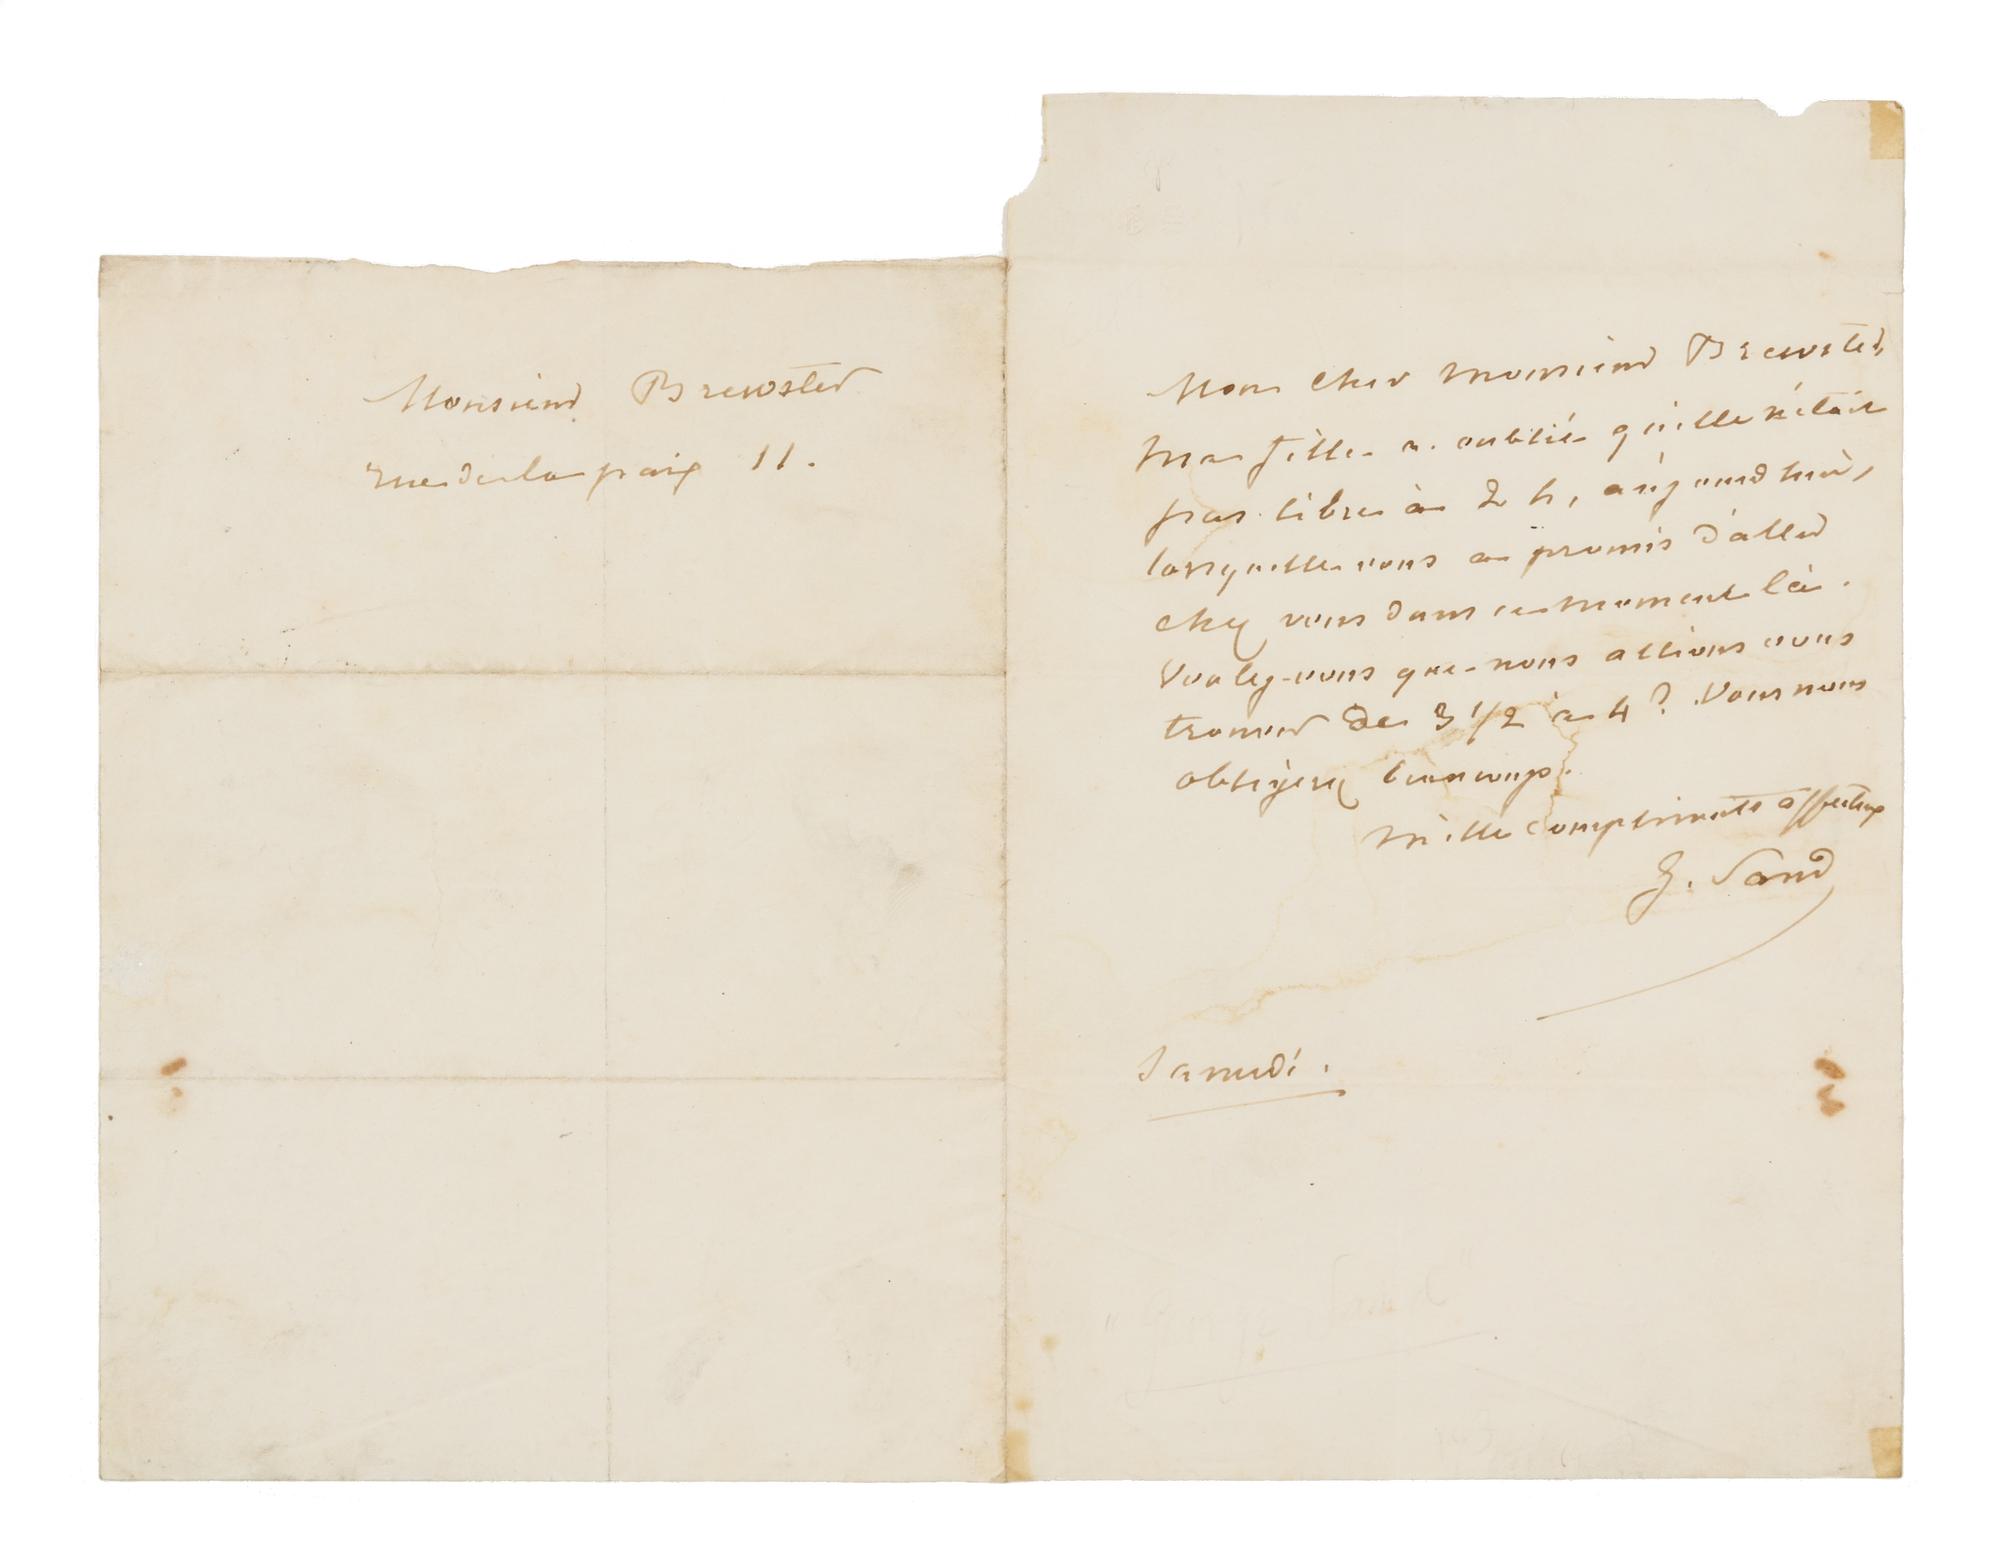 Monsieur Brewster
rue de la paix 11.
Mon cher monsieur Brewster,
Ma fille a oublié qu'elle n'était
pas libre à 2 h, aujourd'hui,
lorsqu'elle vous a promis d'aller
chez vous dans ce moment là.
Voulez-vous que nous allions vous
trouver de 3 1/2 à 4 ? Vous nous
obligerez beaucoup.
Mille compliments affectueux
G. Sand
Samedi.
"George Sand"